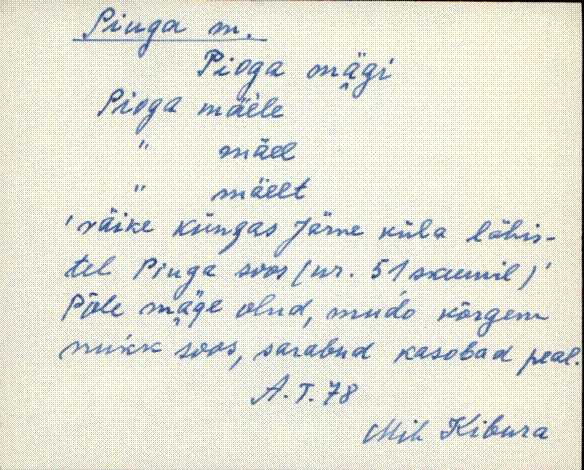 Piuga m.
Pioga mägi
Pioga mäele
" mäel
" mäelt
'väike küngas Järve küla lähis-
tel Piuga soos (nr. 51 skeemil)'
Põle mäge olnd, mudo kõrgem
nukk soos, sarabud kasobad peal.
A. T. 78
Mih Kibura